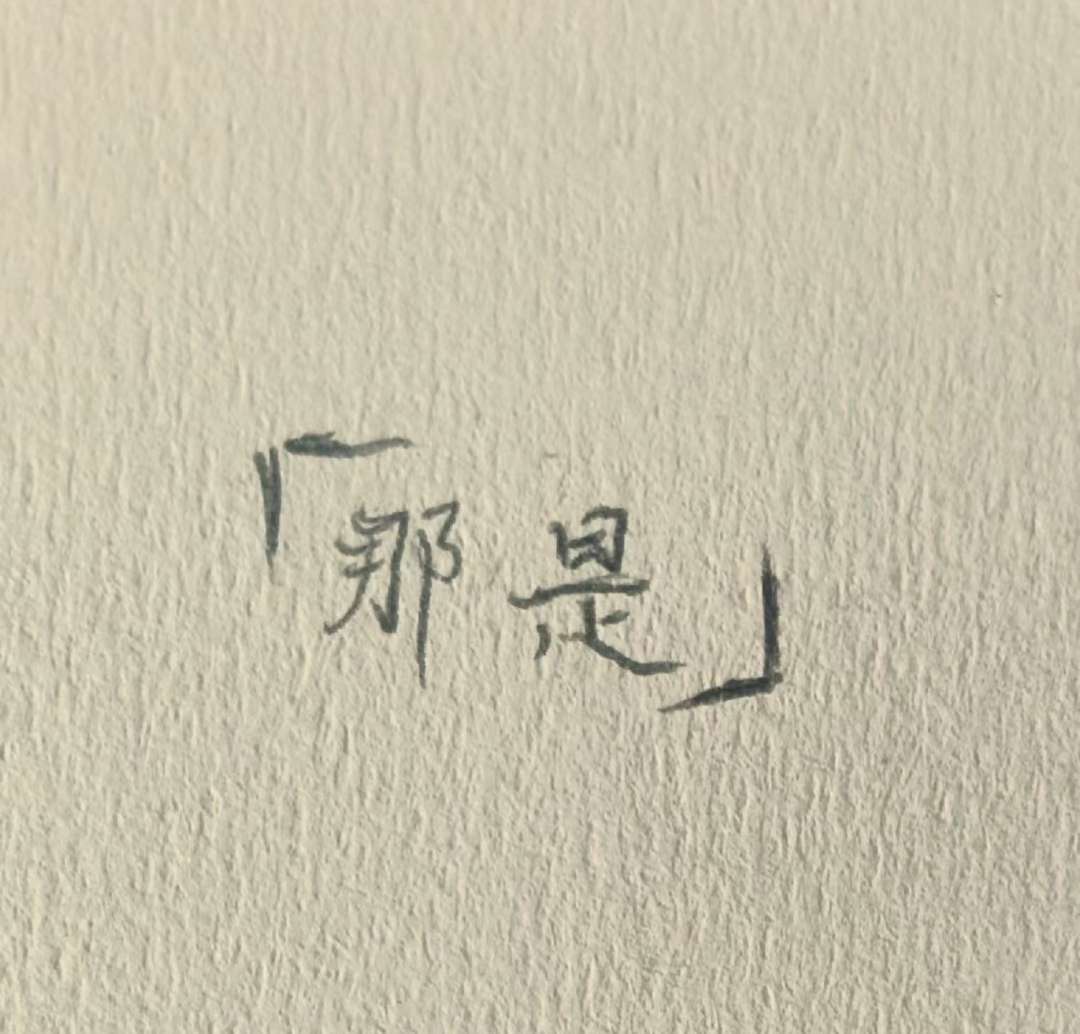 「那是」